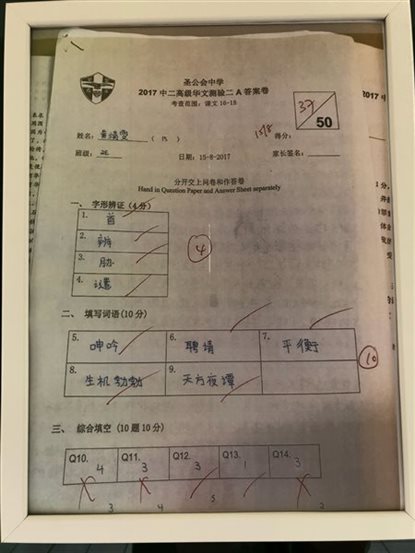 圣公会中学
2017 中二高级华文测验二 A 答案卷
考查范围：课文 16-18
37
50
姓名： ( )
15/8 得分：
班级： 日期：15-8-2017 家长签名：
分开交上问卷和作答卷
Hand in Question Paper and Answer Sheet separately
一、 字形辨证（4 分）
1. 首
2. 辨
3. 胁
4. 设置
4
二、 填写词语(10 分)
5. 呻吟 6. 聘请 7. 平衡
8. 生机勃勃 9. 天方夜谭
10
三、 综合填空 (10 题 10 分)
Q10. 4 Q11. 3 Q12. 3 Q13. 1 Q14. 3
3 4 5 2
2017 中